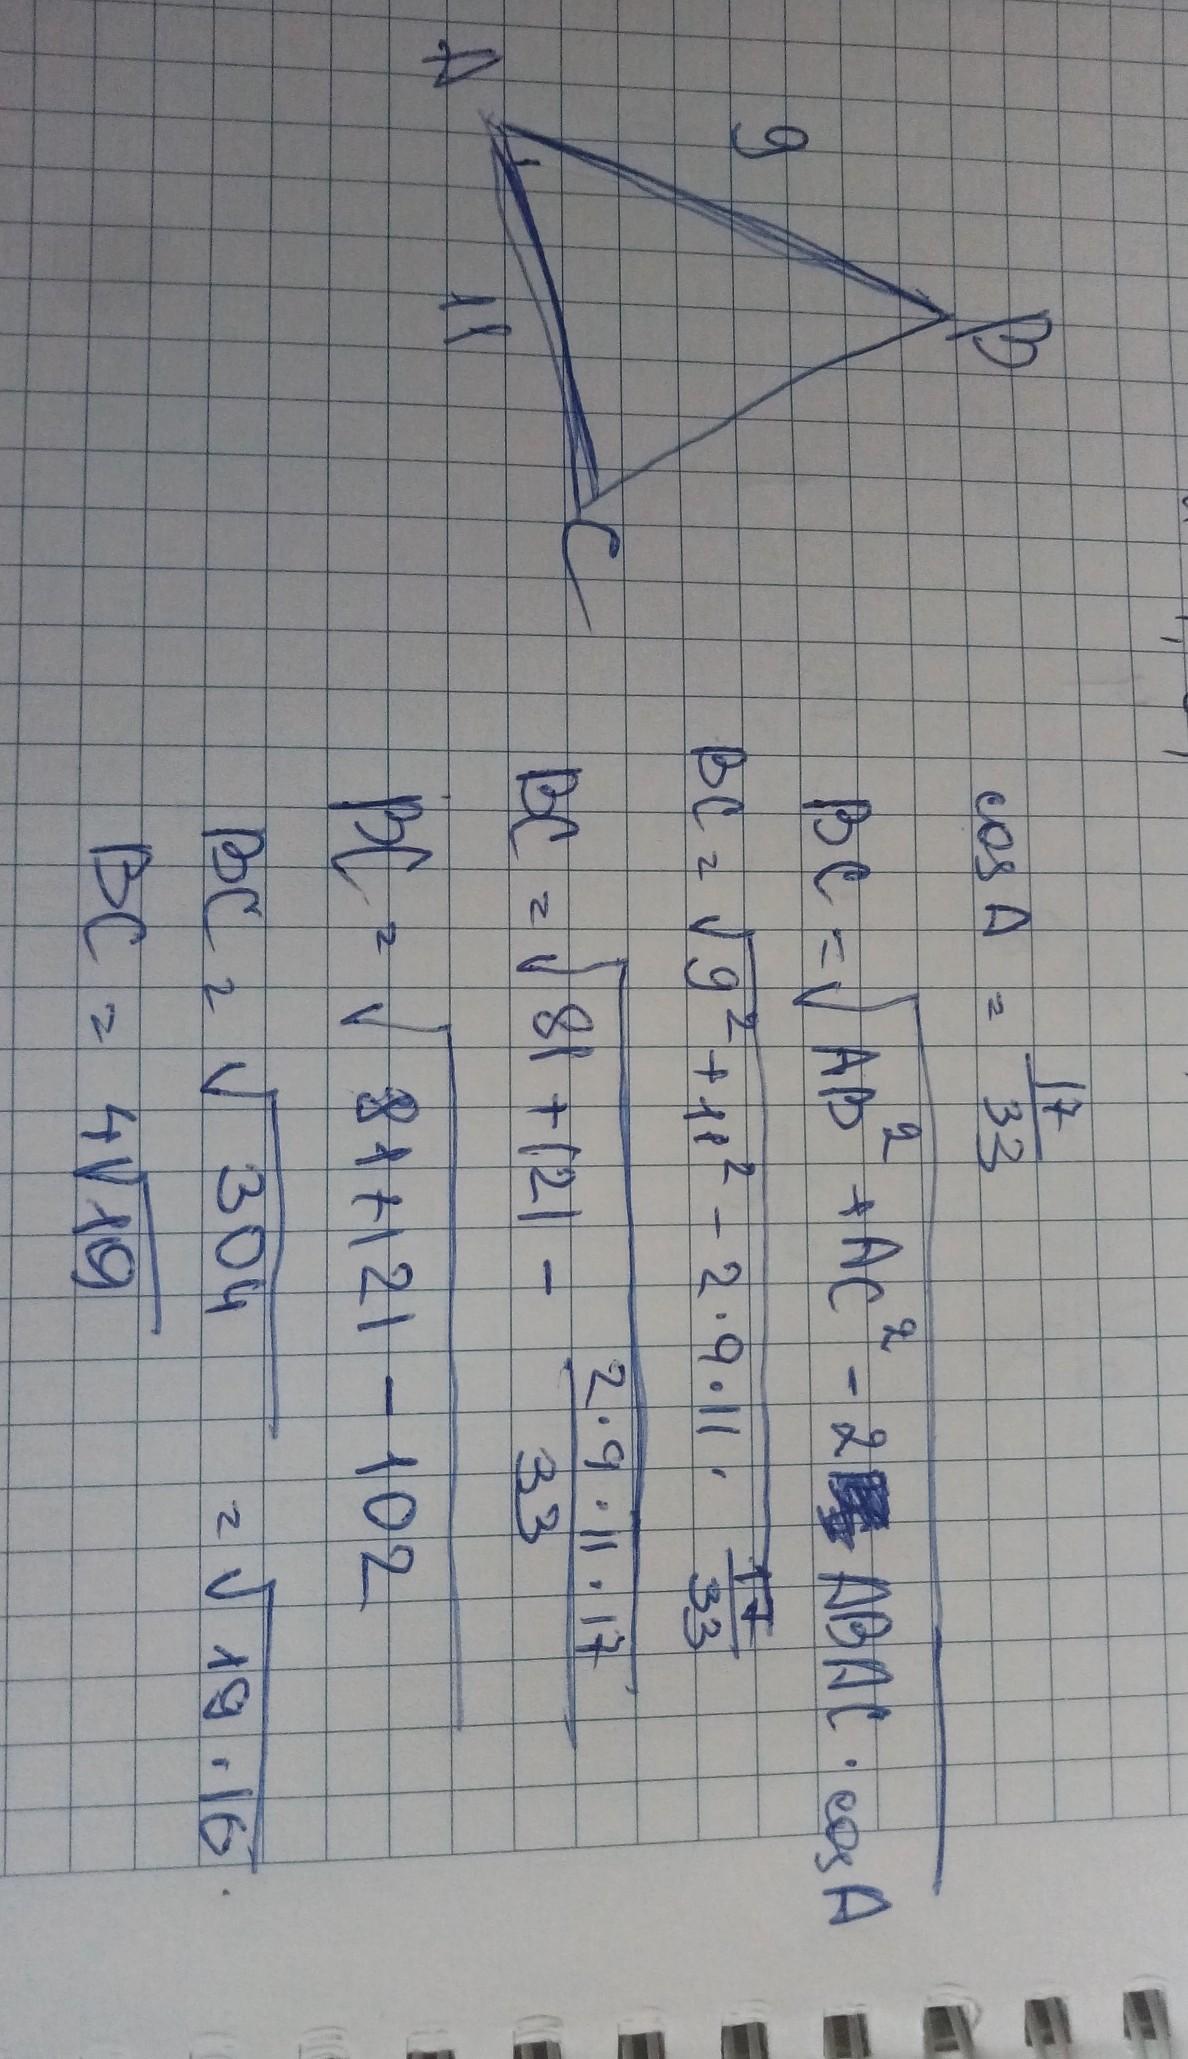 B
9
A
11
C
cos A = 17/33
BC = √(AB² + AC² - 2 ABAC · cos A)
BC = √(9² + 11² - 2 · 9 · 11 · 17/33)
BC = √(81 + 121 - (2 · 9 · 11 · 17)/33)
BC = √(81 + 121 - 102)
BC = √304 = √(19 · 16)
BC = 4√19